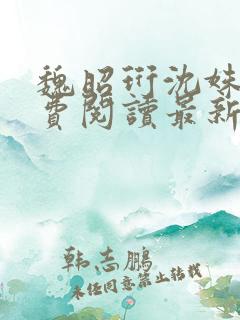 魏昭珩沈妹
费阅读最新
韩志鹏
未经同意禁止转载